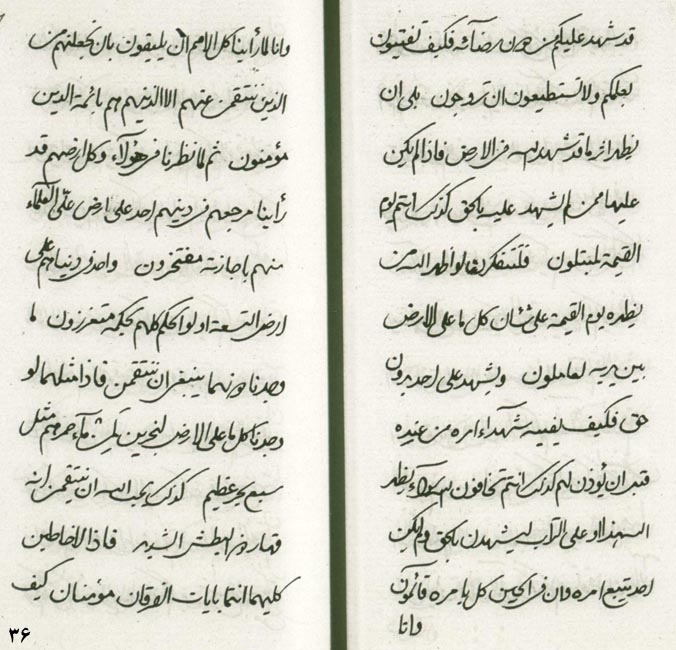 قد شهد عليكم من دون رضآئه فكيف تفتيون
بعلمكم ولا تستطيعون ان تروجون بلى ان
يظهر اثر ما قد شهد الله فى الارض فاذا لم يكن
عليها ممن لم يشهد عليه بالحق كذلك انتم يوم
القيمة لمبتلون فلتتفكرن لو اظهر الله من
يظهره يوم القيمة على شان كل ما على الارض
بين يديه لعاملون ويشهد على احد بدون
حق فكيف يفنيه شهدآء امره من عنده
قبل ان يؤذن لهم كذلك انتم تخافون يظهر
الله هذا و على التراب ليشهدن بالحق ولم يكن
احد يتبع امره وان فى الحين كل بامره قائمون
وانا
وانا لما راينا كل الامم ان يليقون بان نجعلنهم من
الذين ننتقمن عنهم الا الذينهم هم بائمة الدين
مؤمنون ثم لما نظرنا فى هؤلآء وكل ارضهم قد
راينا مرجعهم فى دينهم احد على ارض علّى العلمآء
منهم باجازته مفتخرون واحد فى دنياهم على
ارض التسعة اولوا الحكم كلهم بحكمه متعززون ما
وجدنا دونهما ينبغى ان ننتقمن فاذا مثلهما لو
وجدنا كل ما على الارض لبحرين مآء خمرهم مثل
سبع بحر عظيم كذلك يحب الله ان ينتقمن انه
قهار ذو البطش الشديد فاذا لاخاطبن
كليهما انتما بايات الفرقان مؤمنان كيف
۳۶